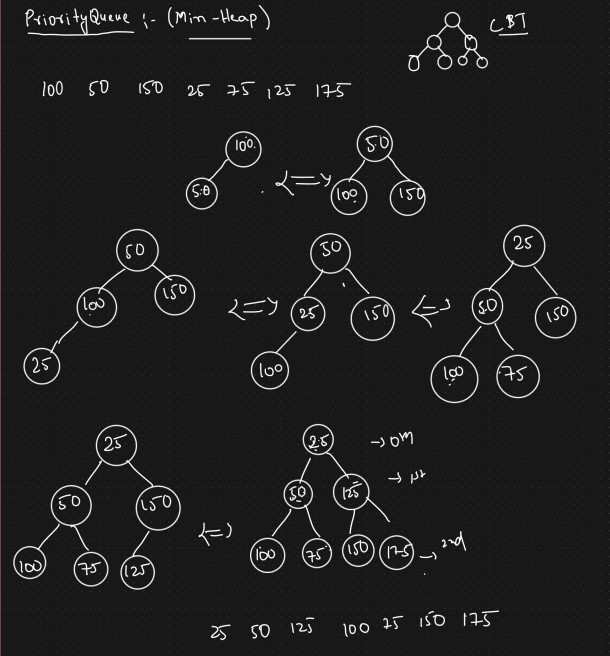 PriorityQueue :- (Min-Heap)
CBT
100 50 150 25 75 125 175
100
50
<=>
50
100 150
50
100 150
25
<=>
50
25 150
100
<=>
25
50 150
100 75
25
50 150
100 75 125
<=>
25 → 0th
50 125 → 1st
100 75 150 175 → 2nd
25 50 125 100 75 150 175